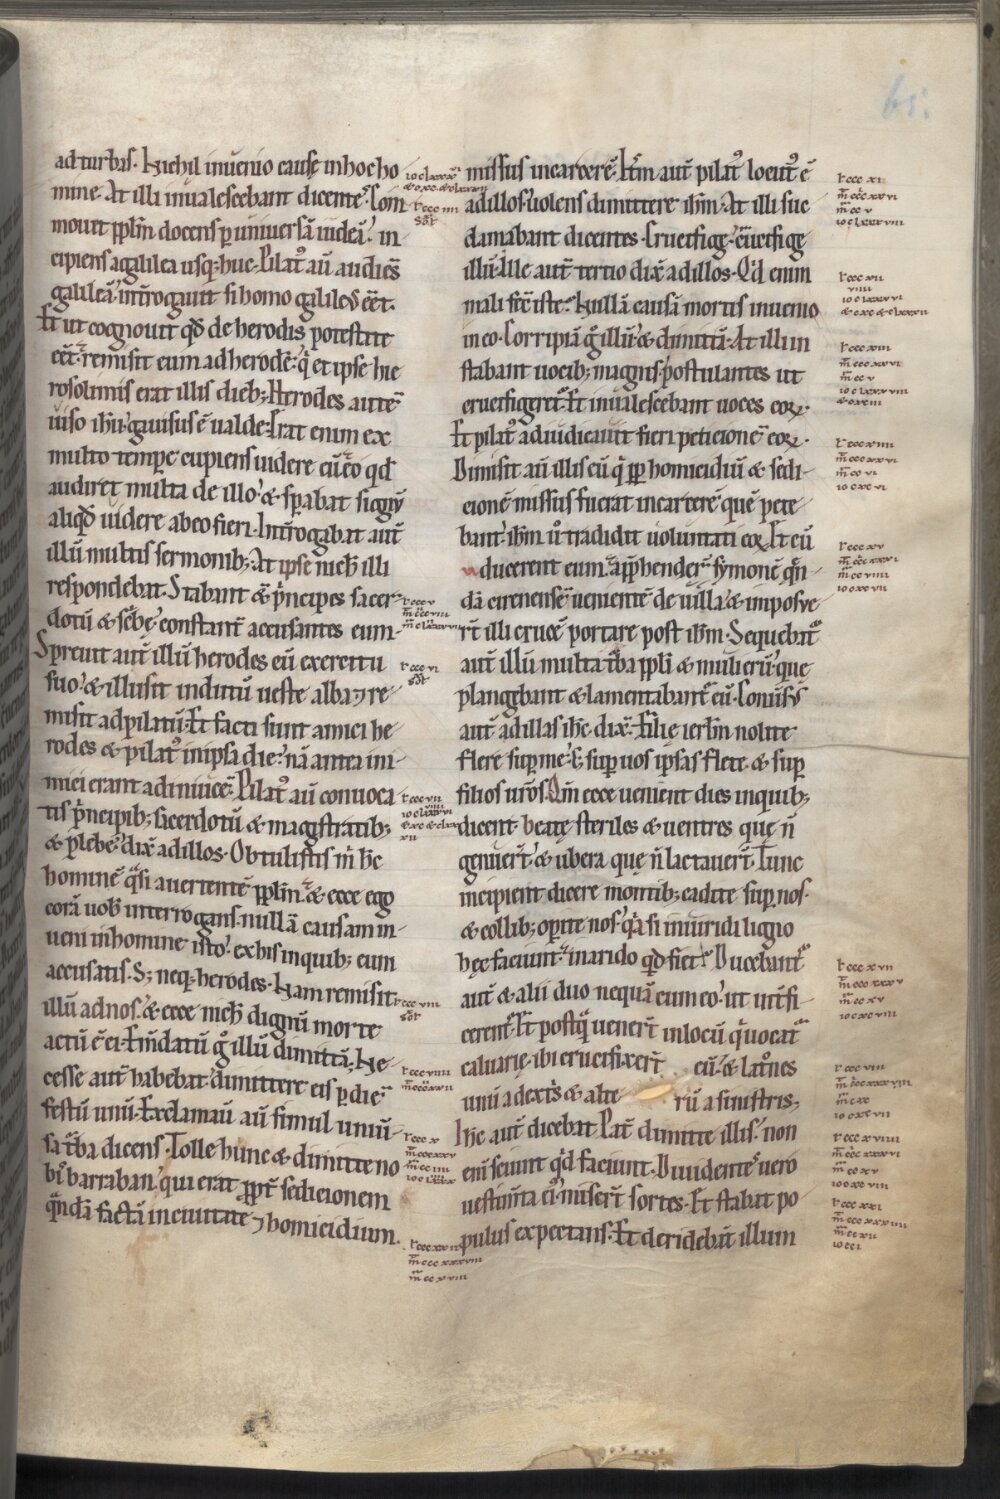 65.
ad turbas. Nichil inuenio causę in hoc ho
mine. At illi inualescebant dicentes. Com
mouit ppl̅m docens ꝑ uniuersā iudeā. in
cipiens a galilea usq; huc. Pilat᷒ aū audiēs
galileā. int̅rogauit si homo galileus eēt.
Et ut cognouit qd̅ de herodis potestate
eēt. remisit eum ad herodē. q̅ et ipse hie
rosolimis erat illis dieb;. Herodes aute̅
uiso ih̅u. gauisus ē ualde. Erat enim ex
multo tempe̅ cupiens uidere eū. eo qd̅
audiret multa de illo. & sp̅abat signū
aliqd̅ uidere ab eo fieri. Int̅rogabat aut̅
illū multis sermonib;. At ipse nich̅ illi
respondebat. Stabant & p̅ncipes sacer
dotū & sc̅bę. constant̅ accusantes eum.
Spreuit aut̅ illū herodes cū exercitu
suo. & illusit indutū ueste alba ⁊ re
misit ad pilatū. Et facti sunt amici he
rodes & pilat᷒ in ipsa die. nā antea ini
mici erant ad inuicē. Pilat᷒ aū conuoca
tis p̅ncipib; sacerdotū & magistratib;
& plebe. dix̅ ad illos. Obtulistis m̅ h̅c
hominē q̅si auertentē ppl̅m. & ecce ego
corā uob̅ interrogans. nullā causam in
ueni in homine isto. ex his in quib; eum
accusatis. S; neq; herodes. Nam remisit
illū ad nos. & ecce nich̅ dignū morte
actū ē ei. Em̅datū g̊ illū dimittā. Ne
cesse aut̅ habebat dimittere eis ꝑ die̅
festū unū. Exclamaū aū simul uniu̅
sa t̅ba dicens. Tolle hunc & dimitte no
b̅ barraban. qui erat pp̅t̅ sedicionem
q̅ndā factā in ciuitate ⁊ homicidium
missus in carcerē. It̅m aut̅ pilat᷒ locut᷒ ē
ad illos. uolens dimittere ih̅m. At illi suc
clamabant dicentes. Crucifige. crucifige
illū. Ille aut̅ tertio dix̅ ad illos. Qd̅ enim
mali fec̅ iste. Nullā causā mortis inuenio
in eo. Corripiā g̊ illū. & dimittā. At illi in
stabant uocib; magnis postulantes ut
crucifigeret̅. Et inualescebant uoces eoꝝ.
Et pilat᷒ adiudicauit fieri peticionē eoꝝ.
Dimisit aū illis eū q̅ pp̅ homicidiū & sedi
cionē missus fuerat in carcerē quē pete
bant. ih̅m u̅ tradidit uoluntati eoꝝ. Et cū
ducerent eum. app̅hender̅ symonē q̅n
dā cirenensē uenientē de uilla. & imposue
rt̅ illi crucē portare post ih̅m. Sequebat̅
aut̅ illū multa t̅ba ppl̅i & mulierū. que
plangebant & lamentabant̅ eū. Conuersus
aut̅ ad illas ih̅c. dix̅. Filie ierl̅m nolite
flere sup me. s; sup uos ipsas flete. & sup
filios ur̅os. Qm̅ ecce uenient dies in quib;
dicent. beatę steriles & uentres que n̅
genuer̅t. & ubera quę n̅ lactauer̅t. Tunc
incipient dicere montib;. cadite sup nos.
& collib;. operite nos. q̅a si in uiridi ligno
hęc faciunt. in arido qd̅ fiet. Ducebant̅
aut̅ & alii duo nequā cum eo. ut int̅fi
cerent̅. Et postq̅ uener̅t in locū q̅ uocat̅
caluarię. ibi crucifixer̅t eū. & lat̅nes
unū a dext̅s & alte rū a sinistris.
Ih̅c aut̅ dicebat. Pat̅ dimitte illis. non
eni̅ sciunt qd̅ faciunt. Diuidentes uero
uestim̅ta ei᷒. miser̅t sortes. Et stabat po
pulus expectans. Et deridebāt illum